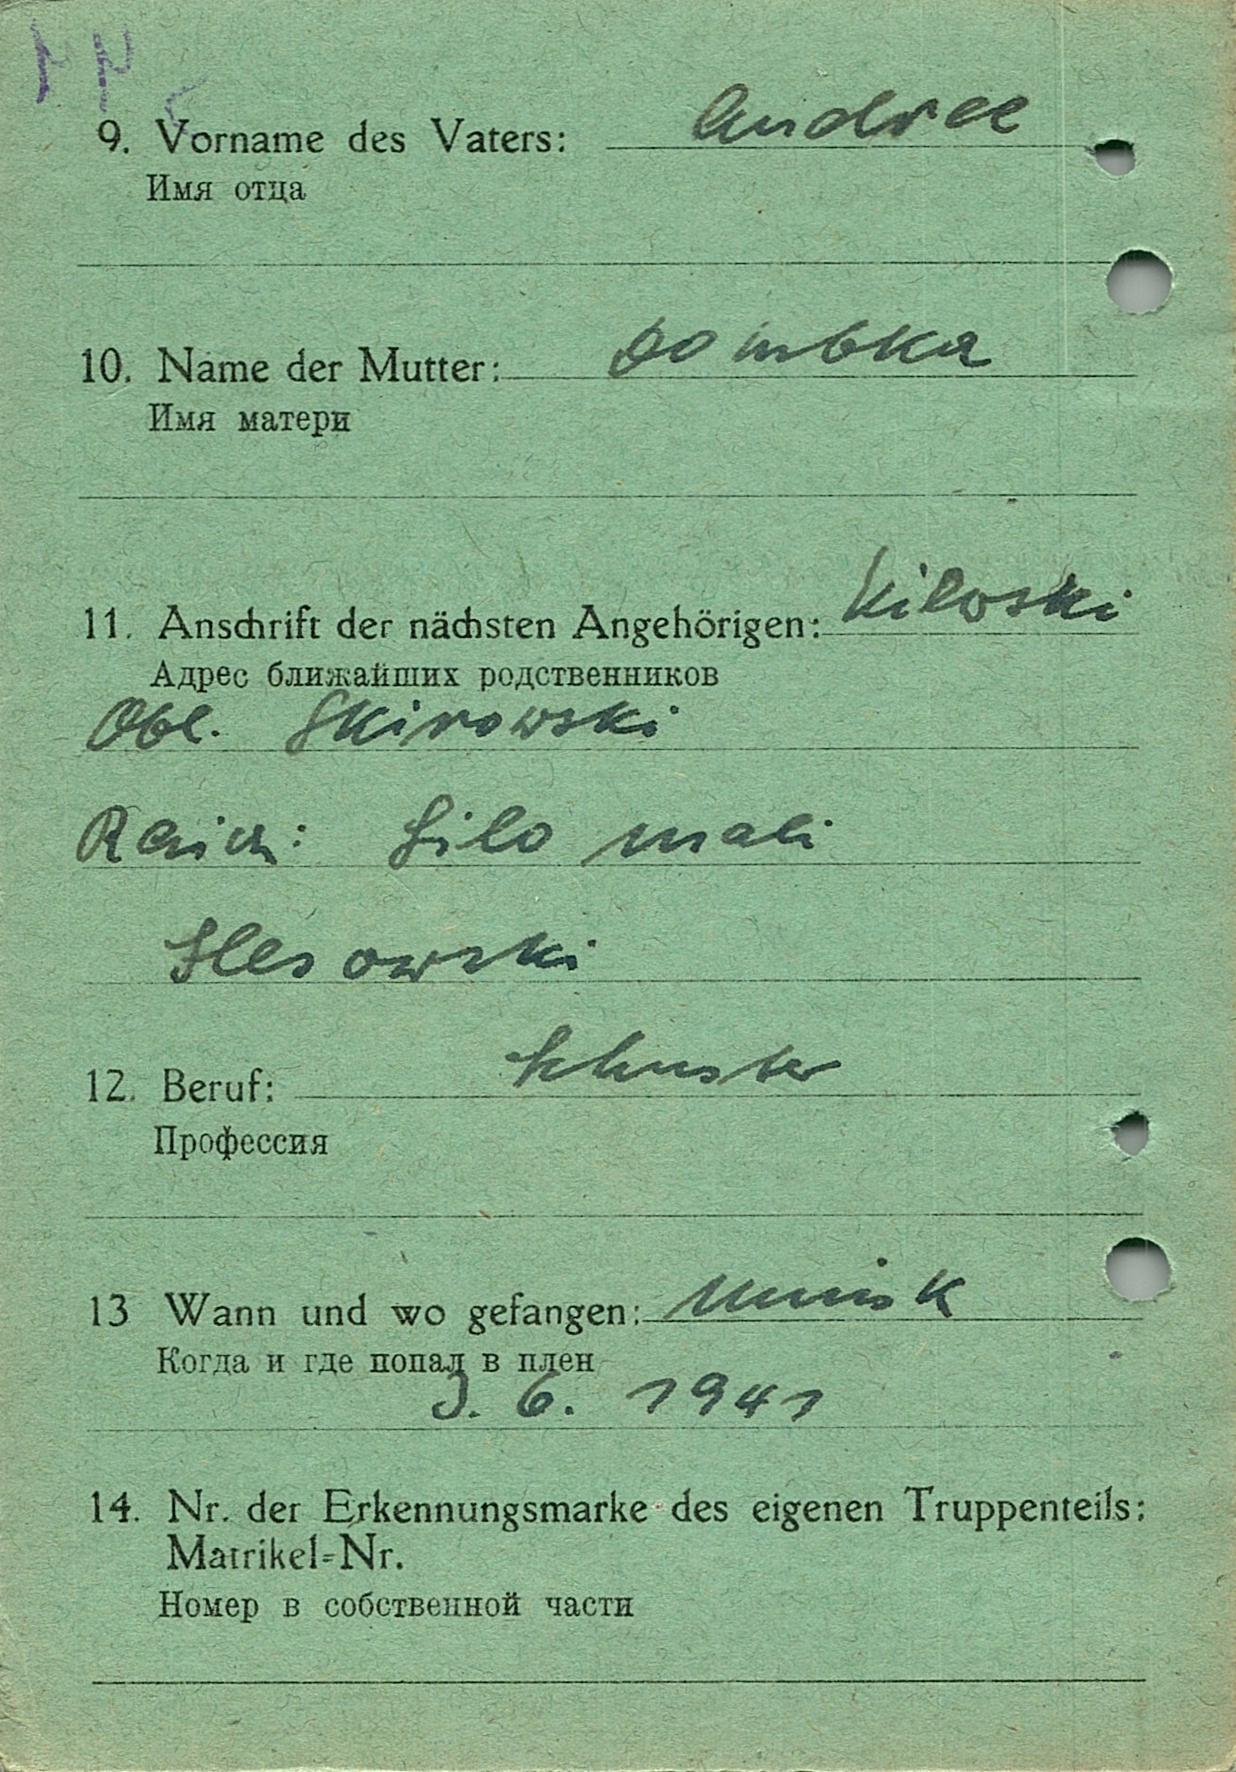 9. Vorname des Vaters: Andree
Имя отца
10. Name der Mutter: Dombka
Имя матери
11. Anschrift der nächsten Angehörigen: Kiloski
Адрес ближайших родственников
Obl. Skirowski
Raion: Silo mali
Slesowski
12. Beruf: Schuster
Профессия
13 Wann und wo gefangen: Minsk
Когда и где попал в плен
3. 6. 1941
14. Nr. der Erkennungsmarke des eigenen Truppenteils:
Matrikel=Nr.
Номер в собственной части